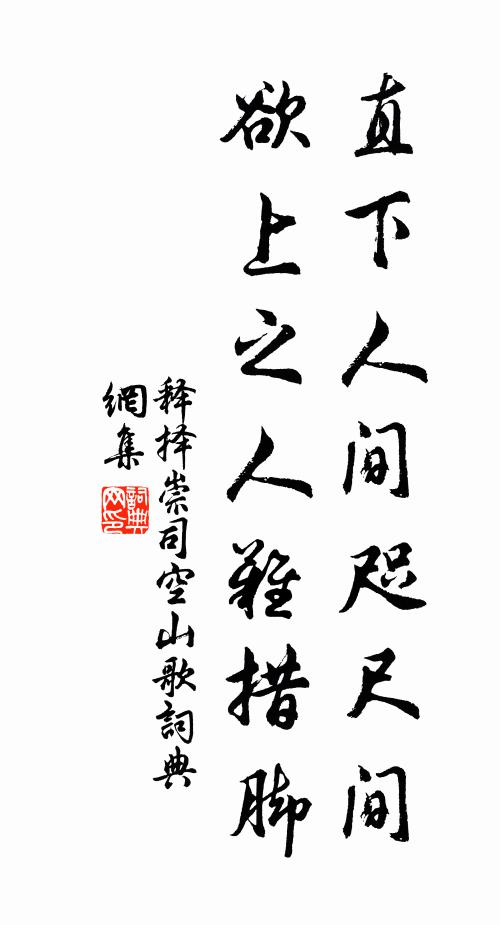 直下人间咫尺间
欲上之人難措脚
释择崇司空山歌詞典
網集
詞典
网印